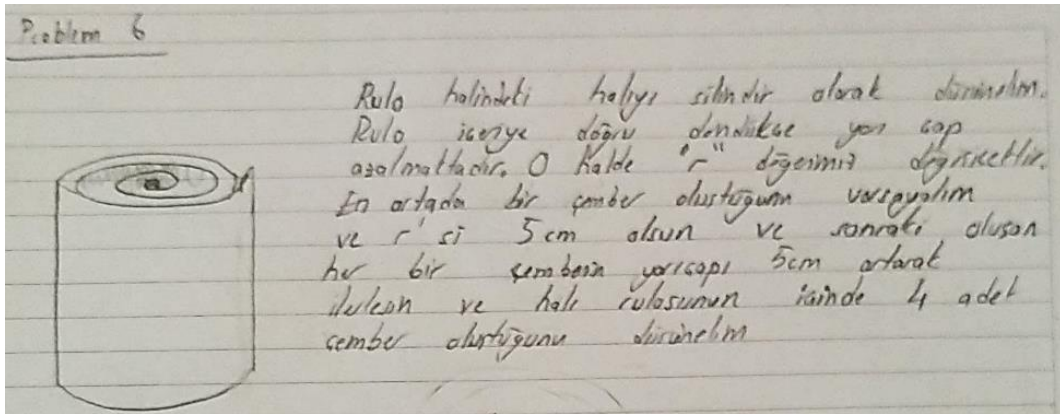 Problem 6
Rulo halindeki halıyı silindir olarak düşünelim.
Rulo içeriye doğru döndükçe yarı çap
azalmaktadır. O halde "r" değerimiz değişkettir.
En ortada bir çember oluştuğunu varsayalım
ve r'si 5 cm olsun ve sonraki oluşan
her bir çemberin yarıçapı 5cm artarak
ilerlesin ve halı rulosunun içinde 4 adet
çember oluştuğunu düşünelim